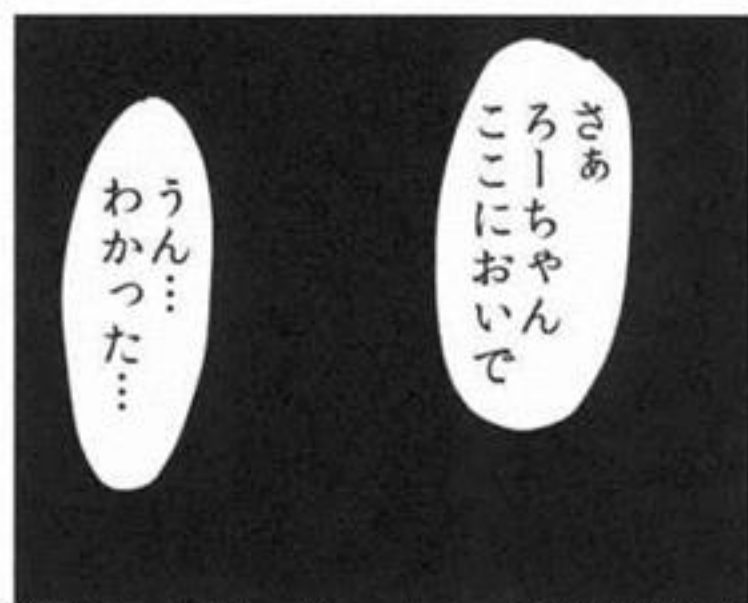 さぁ
ろーちゃん
ここにおいで
うん…
わかった…